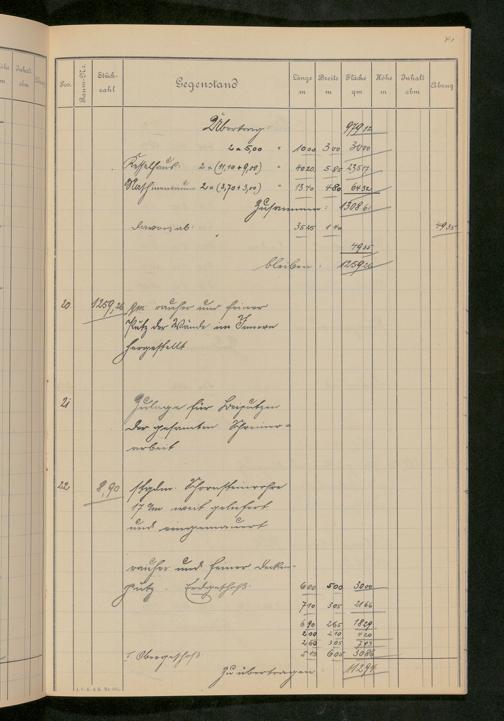 Pos. Raum-Nr. Stückzahl Gegenstand Länge m Breite m Fläche qm Höhe m Inhalt cbm Abzug
Übertrag 979 12
2 × 5,00 " 10 00 3 00 30 00
Kesselhaus 2 × (11,10 + 9,00) " 40 20 5 85 235 17
2 × (3,70 + 3,00) " 13 40 4 80 64 32
Zusammen: 1308 61
davon ab: 49 35
49 35
bleiben: 1259 26
20 1259,26 qm rauher und feiner
Putz der Wände im Innern
hergestellt
21 Zulage für Beiputzen
der gesamten Schreiner=
arbeit
22 8,90 stgdm. Schornsteinrohre
17 cm weit geliefert
und eingemauert
rauher und feiner Decken-
putz. Erdgeschoß 6 00 5 00 30 00
7 10 3 05 21 66
6 90 2 65 18 29
2 00 2 10 4 20
2 60 3 05
I. Obergeschoß 5 10 6 05 30 86
Zu übertragen 112 94